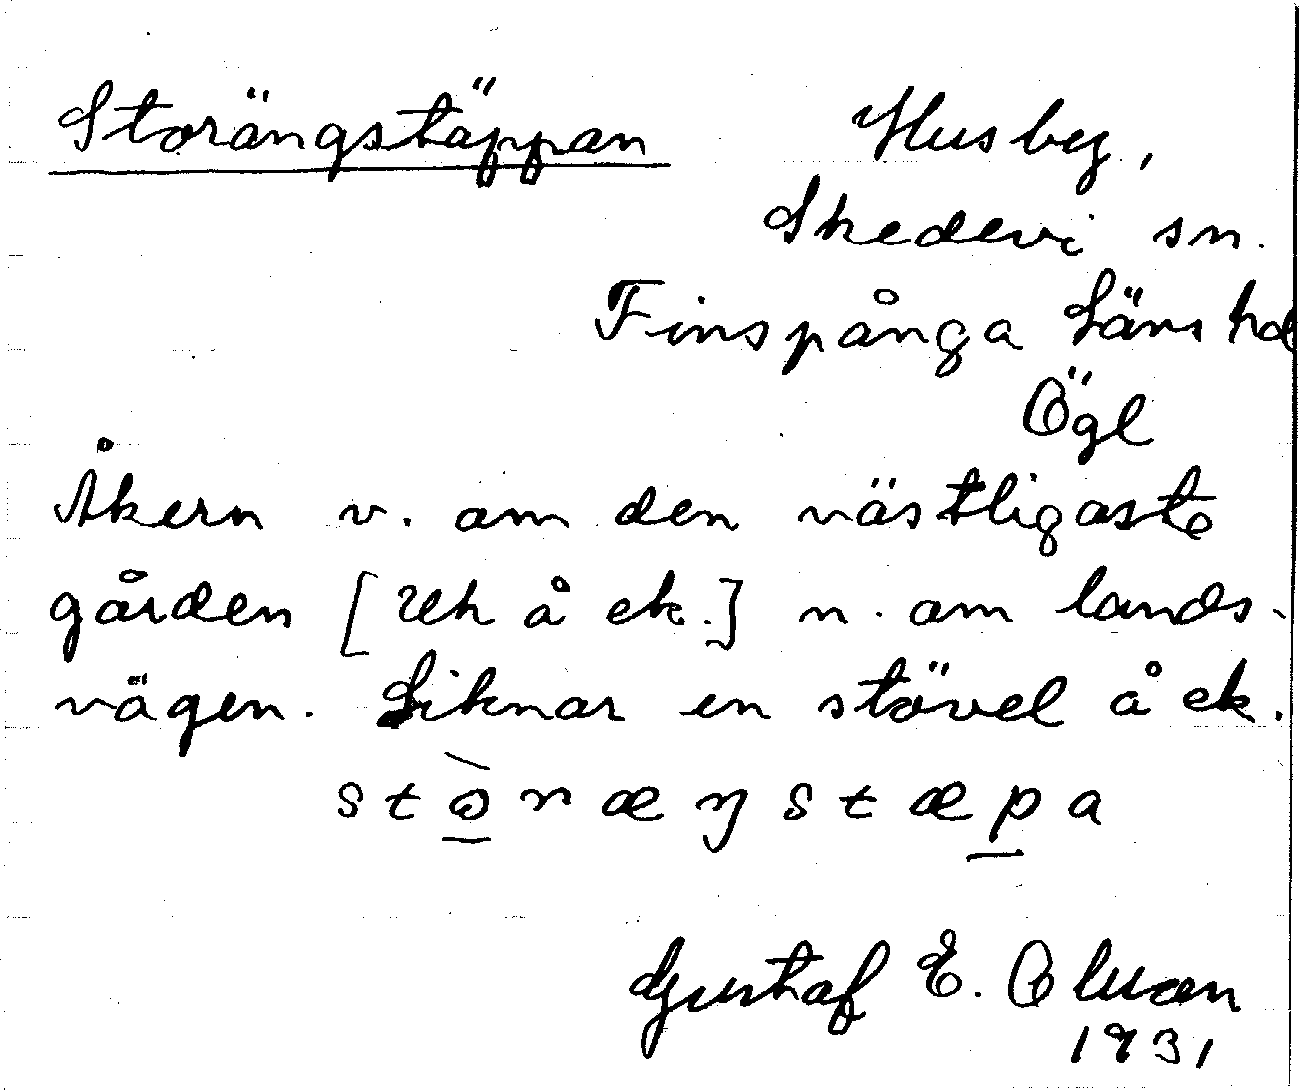 Storängstäppan Husby,
Skedevi sn.
Finspånga läns hd
Ögl
Åkern v. om den västligaste
gården [Uh å ek.] n. om lands-
vägen. Liknar en stövel å ek.
stòræŋstæpa
Gustaf E. Olsson
1931